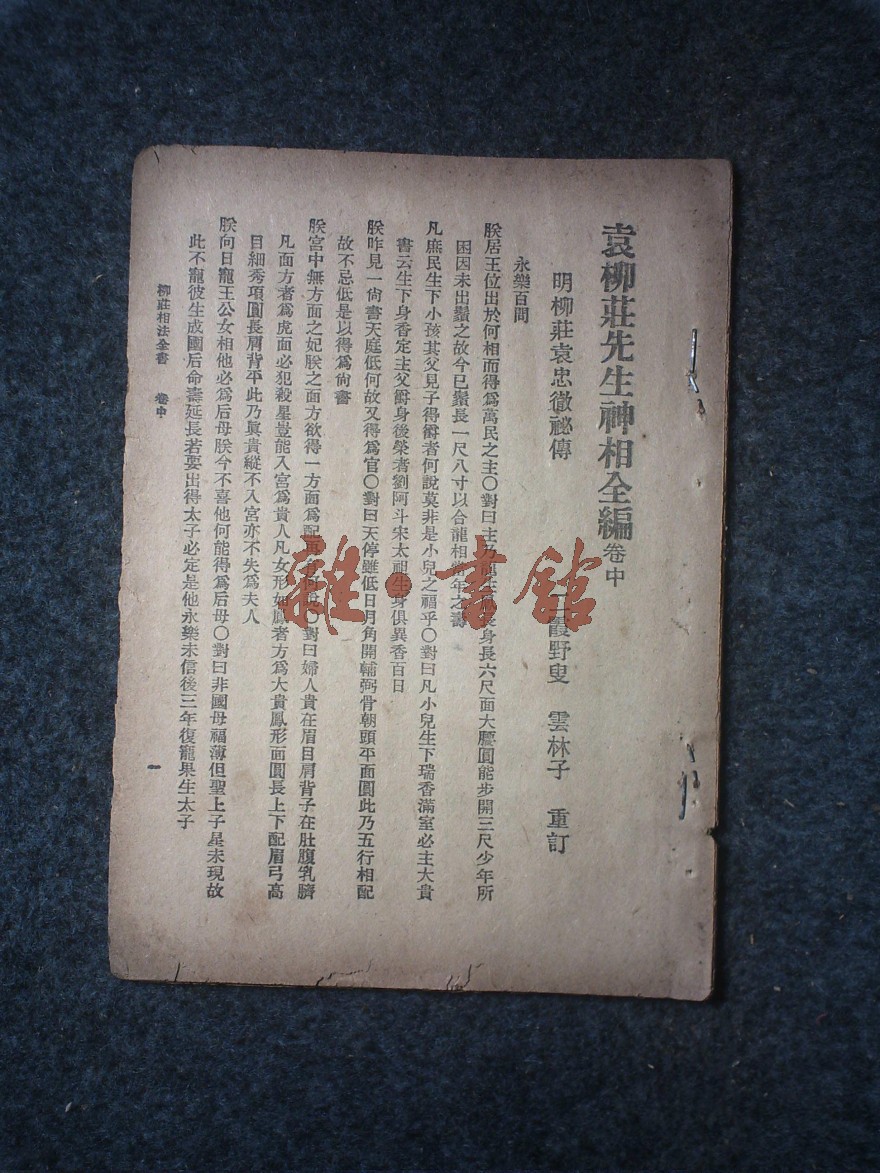 袁柳莊先生神相全編卷中
明柳莊袁忠徹祕傳 霞野叟 雲林子 重訂
永樂百問
朕居王位出於何相而得爲萬民之主〇對曰主乃龍 身長六尺面大腰圓能步開三尺少年所
困因未出鬚之故今已鬚長一尺八寸以合龍相當年之壽
凡庶民生下小孩其父見子得爵者何說莫非是小兒之福乎〇對曰凡小兒生下瑞香滿室必主大貴
書云生下身香定主父爵身後榮者劉阿斗宋太祖生身俱異香百日
朕昨見一尙書天庭低何故又得爲官〇對曰天停雖低日月角開輔弼骨朝頭平面圓此乃五行相配
故不忌低是以得爲尙書
朕宮中無方面之妃朕之面方欲得一方面爲配 〇對曰婦人貴在眉目肩背子在肚腹乳臍
凡面方者爲虎面必犯殺星豈能入宮爲貴人凡女形如鳳者方爲大貴鳳形面圓長上下配眉弓高
目細秀項圓長肩背平此乃眞貴縱不入宮亦不失爲夫人
朕向日寵王公女相他必爲后母朕今不喜他何能得爲后母〇對曰非國母福薄但聖上子星未現故
此不寵彼生成國后命壽延長若要出得太子必定是他永樂未信後三年復寵果生太子
柳莊相法全書 卷中
一
雜·書館